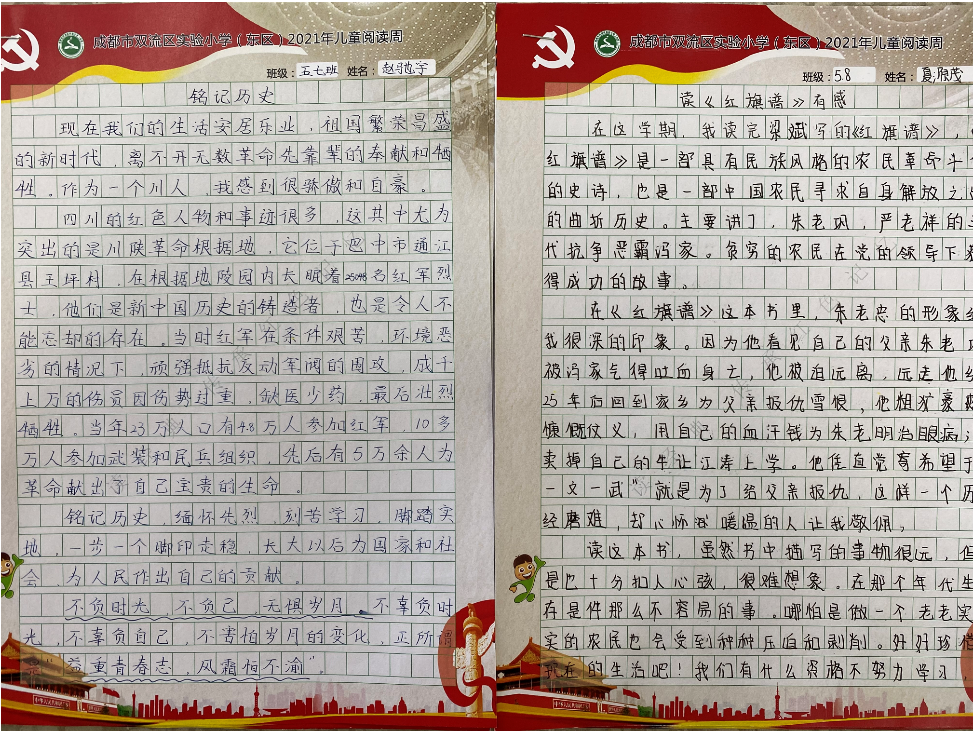 成都市双流区实验小学（东区）2021年儿童阅读周
班级：五七班 姓名：赵
铭记历史
现在我们的生活安居乐业，祖国繁荣昌盛
的新时代，离不开无数革命先辈的奉献和牺
牲。作为一个川人，我感到很骄傲和自豪。
四川的红色人物和事迹很多，这其中尤为
突出的是川陕革命根据地，它位于巴中市通江
县王坪村，在根据地陵园内长眠着25048名红军烈
士，他们是新中国历史的铸造者，也是令人不
能忘却的存在。当时红军在条件艰苦，环境恶
劣的情况下，顽强抵抗反动军阀的围攻，成千
上万的伤员因伤势过重，缺医少药，最后壮烈
牺牲。当年23万人口有4.8万人参加红军，10多
万人参加武装和民兵组织，先后有5万余人为
革命献出了自己宝贵的生命。
铭记历史，缅怀先烈，刻苦学习，脚踏实
地，一步一个脚印走稳，长大以后为国家和社
会，为人民作出自己的贡献。
不负时光，不负己，无惧岁月，不享负时
光，不享负自己，不害怕岁月的变化，正所谓
是“益重青春志，风霜恒不渝”。
成都市双流区实验小学（东区）2021年儿童阅读周
班级：5.8 姓名：夏源茂
读《红旗谱》有感
在这学期，我读完梁斌写的《红旗谱》，
红旗谱》是一部具有民族风格的农民革命斗
的史诗，也是一部中国农民寻求自身解放之
的曲折历史。主要讲了，朱老巩，严老祥的
代抗争恶霸冯家。贫穷的农民在党的领导下
得成功的故事。
在《红旗谱》这本书里，朱老忠的形象给
我很深的印象。因为他看见自己的父亲朱老
被冯家气得吐血身亡，他被迫远离，远走他
25年后回到家乡为父亲报仇雪恨，他粗犷豪
慷慨仗义，用自己的血汗钱为朱老明治眼病；
卖掉自己的牛让江涛上学。他侄直觉寄希望于
一文一武”就是为了给父亲报仇，这样一个历
经磨难，却心怀温暖的人让我敬佩，
读这本书，虽然书中描写的事物很远，但
是也十分扣人心弦，很难想象。在那个年代生
存是件那么不容易的事。哪怕是做一个老老实
实的农民也会受到种种压迫和剥削。好好珍惜
现在的生活吧！我们有什么资格不努力学习